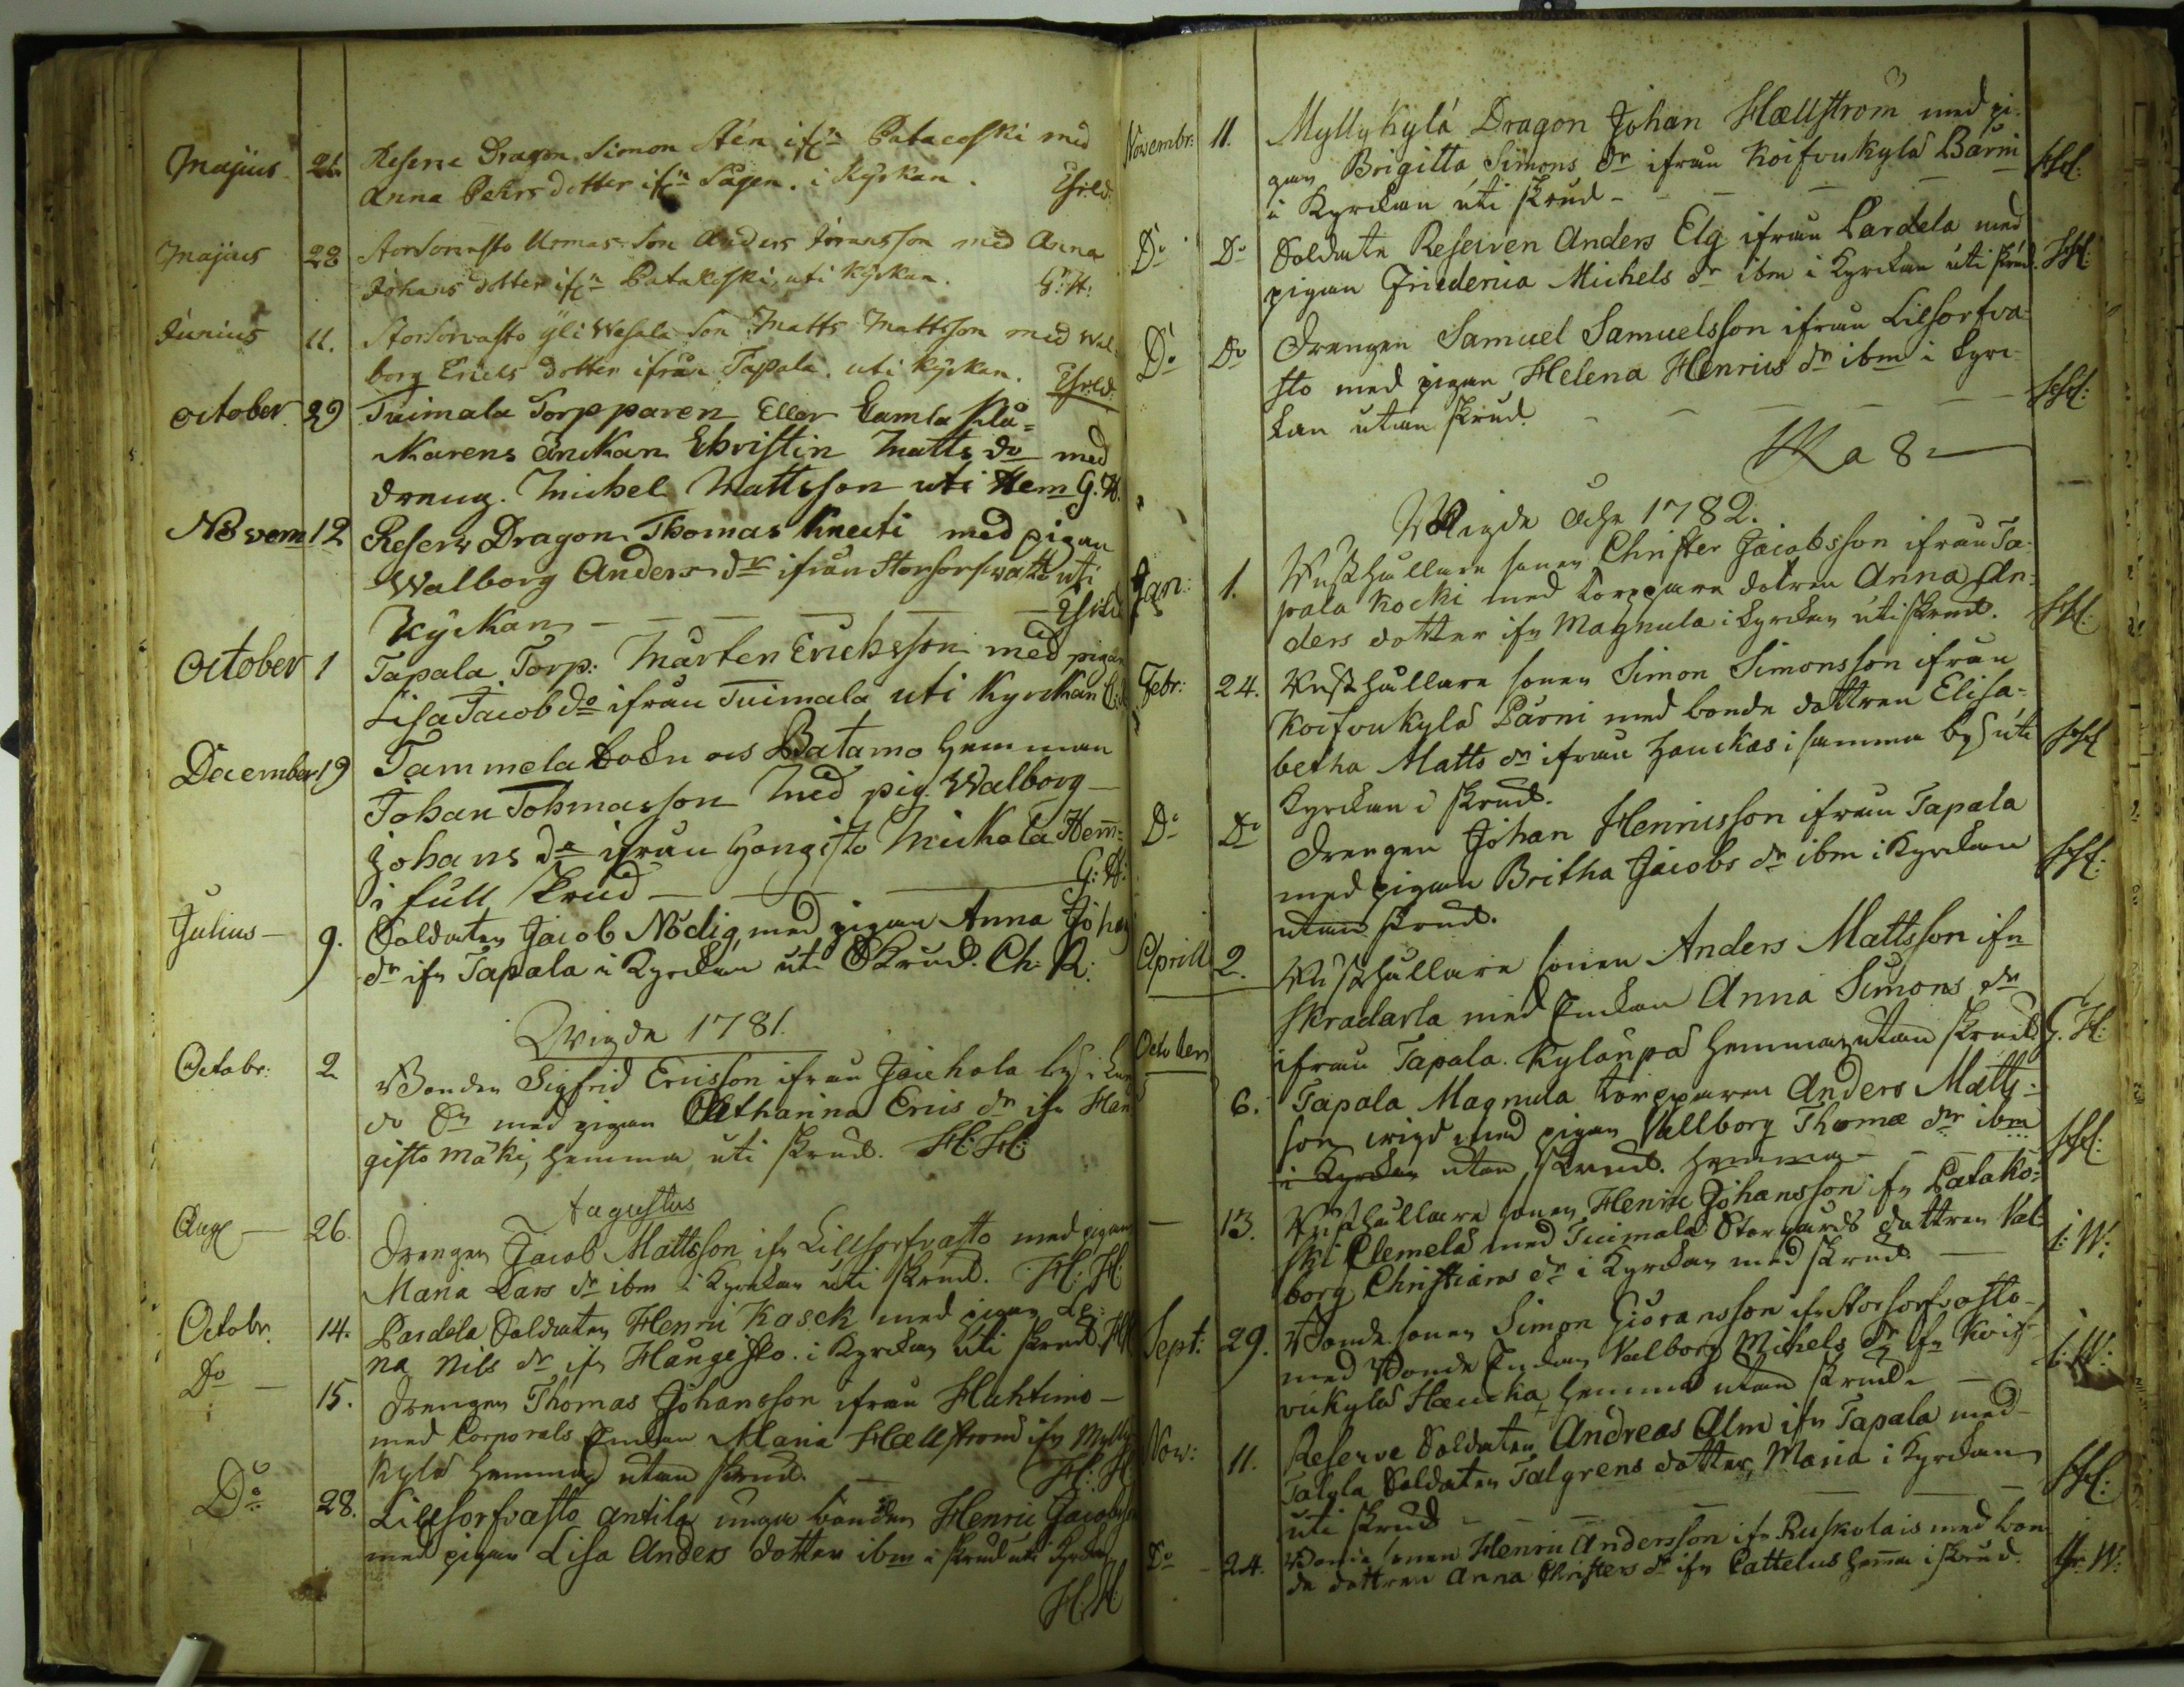 Majus 21. Reserve Dragon Simon Stén ifrn Patakoski med
Anna Pehrs dotter ifrn Sågen. i Kyrkan.
Majus 28 Storsorvasto Urmas Son Anders Jöransson med Anna
Johans dotter ifrn Patakoski, uti Kyrkan. G: H:
Junius 11. Storsorvasto yli Wesala Son Matts Mattsson med Wal-
borg Erics dotter ifrån Tapala. uti Kyrkan.
October 29 Tuimala Torpparen Eller Gamla
Karens Änckan Christin Matts dr med
dräng. Michel Mattsson uti Hem G. H.
Novem 12 Reserv Dragon Thomas Knecti med pigan
Walborg Anders dr ifrån Storsorfwasto uti
Kyrkan
October 1 Tapala Torp: Mårten Ericksson med pigan
Lisa Jacob do ifrån Tuimala uti Kyrckan
December 19 Tammela Sokn ocs Batamo Hemman
Johan Tohmasson Med pig. Walborg
Johans dr ifrån Hongisto Mickola Hem:
i full Skrud G: H:
Julius 9. Soldaten Jacob Nödig, med pigan Anna Johan
dr ifn Tapala i Kyrckan uti Skrud. Ch: R:
Wigde 1781.
Octobr: 2 Bonden Sigfrid Ericsson ifrån Jackola by i
do Sn med pigan Catharina Erics dr ifn Han
gisto mäki, hemma uti skrud. H: H:
Augustus
Aug 26. Drengen Jacob Mattsson ifn Lillsorfvasto med pigan
Maria Lars dr ibm i Kyrckan uti skrud. H: H:
Octobr. 14. Pardela Soldaten Henric Kasck med pigan Le:
na Nils dr ifn Hångesto. i Kyrckan uti skrud H
Do 15. Drengen Thomas Johansson ifrån Huhtimo
med Corporals Enckan Maria Hællström ifn Mylly
kylä hemma utan skrud. H: H
Do 28. Lillsorfvasto Antila unga bonden Henric Jacobsson
med pigan Lisa Anders dotter ibm i skrud uti Kyrckan
H: H
Novembr: 11. Myllykylä Dragon Johan Hællström med pi-
gan Brigitta Simons dr ifrån Koifvukylä Bärni
i Kyrckan uti skrud H:
Do Do Soldate Reserven Anders Elg ifrån Pardela med
pigan Friedrica Michels dr ibm i Kyrckan uti skrud. H:
Do Do Drengen Samuel Samuelsson ifrån Lilsorfva-
sto med pigan Helena Henrics dr ibm i Kyrc-
kan utan skrud. H:
8
Wigde åhr 1782.
Jan: 1. Rusthållare sonen Christer Jacobsson ifrån Ta-
pala Kocki med Torppare dotren Anna An-
ders dotter ifn Magnula i Kyrckan uti skrud. H:
Febr: 24. Rusthållare sonen Simon Simonsson ifrån
Koifvukylä Pärni med bonde dottren Elisa-
betha Matts dr ifrån Hauckas i samma by uti
Kyrckan i skrud.
Do Do Drengen Johan Henricsson ifrån Tapala
med pigan Britha Jacobs dr ibm i Kyrckan
utan skrud.
Aprill 2. Rusthållare sonen Anders Mattsson ifn
Skradarla med Enckan Anna Simons dr
ifrån Tapala. Kylänpä hemman utan skrud G. H:
October 6. Tapala Magnula torpparen Anders Matts-
son wigd med pigan Vallborg Thomæ dr ibm
i Kyrckan utan skrud. hemma
13. Rusthållare sonen Henric Johansson ifn Patako-
ski Clemelä med Tuimala Storgårds dottren Val-
borg Christians dr i Kyrckan med skrud. W:
Sept: 29. Bonde sonen Simon Giöransson ifn Storsorfvasto
med Bonde Enckan Valborg Michels dr ifn Koif-
vukylä Haucka hemma utan skrud. W:
Nov: 11. Reserve Soldaten Andreas Alm ifn Tapala med
Talgla Soldaten Talgrens dotter, Maria i Kyrckan
uti skrud H:
Do 24. Bonde sonen Henric Andersson ifn Ruskolais med bon-
de dottren Anna Christers dr ifn Pattelus hema i skrud. W: